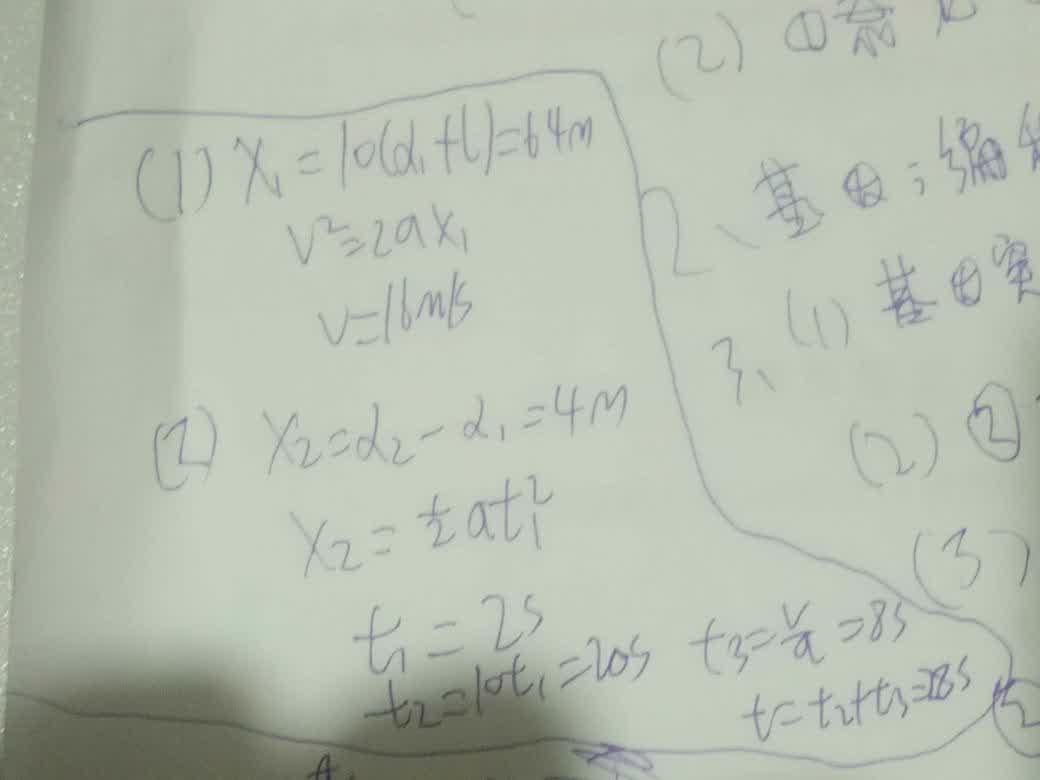 (1) X₁=10(d₁+l)=64m
v²=2ax₁
v=16m/s
(2) X₂=d₂-d₁=4m
X₂=½at₁²
t₁=2s
t₂=10t₁=20s
t₃=v/a=8s
t=t₂+t₃=28s
(2) ①
2、基因:编
3、(1)基因
(2) ②
(3)